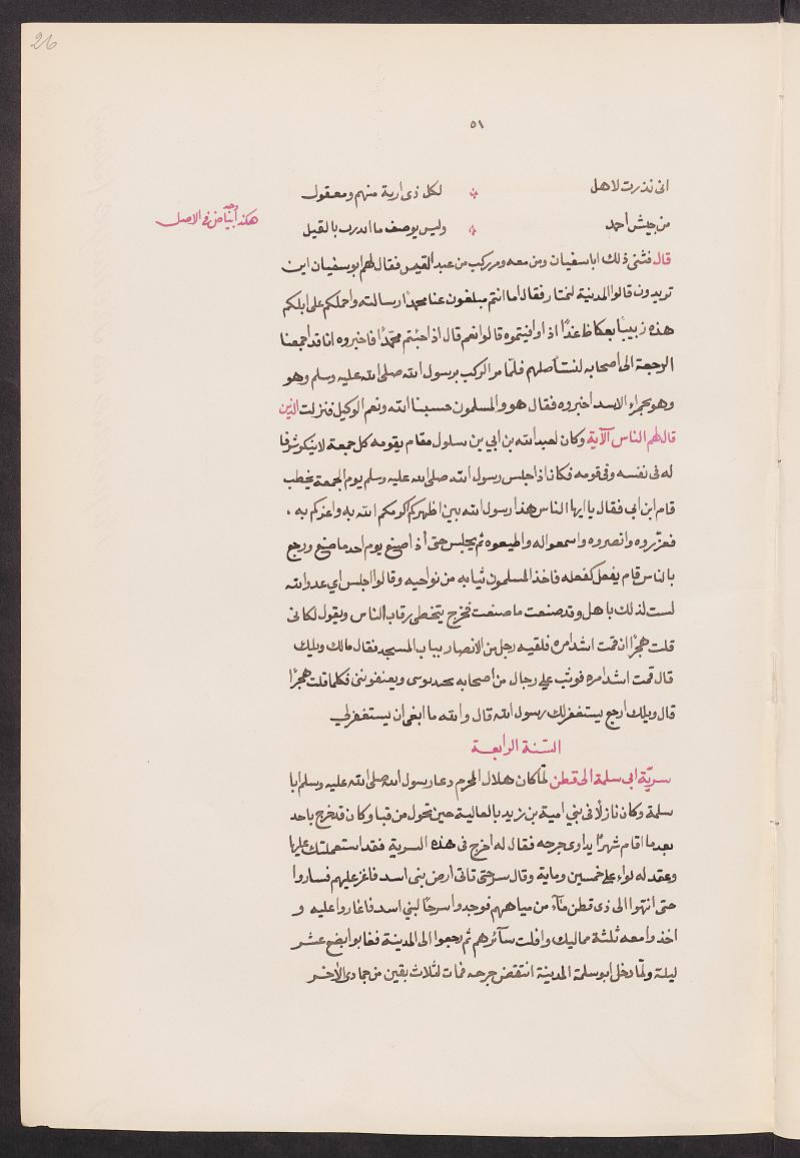 26
٥١
انى نذرت لاهل ؞ لكل ذى اربة منهم ومعقول
من جيش أحمد ؞ وليس يوصف ما انذرت بالقيل
هكذا وجد ابياض فى الاصل
قال فثنى ذلك ابا سفيان ومن معه ومر ركب من عبد القيس فقال لهم ابو سفيان اين
تريدون قالوا المدينة لنمتار فقال اما انتم مبلغون عنا محمدًا رسالته واحملكم على ابلكم
هذه زبيبًا بعكاظ غدًا اذا وافيتموه قالوا نعم قال اذا جئتم محمّدًا فاخبروه انا قد اجمعنا
الرجعة الى اصحابه لنستأصلهم فلمّا مر الركب برسول الله صلى الله عليه وسلم وهو
وهو بحمراء الاسد اخبروه فقال هو والمسلمون حسبنا الله ونعم الوكيل فنزلت الذين
قال لهم الناس الآية وكان لعبد الله بن ابي بن سلول مقام يقومه كل جمعة لا ينكر شرفا
له فى نفسه وفى قومه فكان اذا جلس رسول الله صلى الله عليه وسلم يوم الجمعة يخطب
قام ابن ابى فقال يا ايها الناس هذا رسول الله بين اظهركم اكرمكم الله به واعزكم به ،
فعزّروه وانصروه واسمعوا له واطيعوه ثم يجلس حتى أذا صنع يوم احد ما صنع ورجع
بالناس قام يفعل كفعله فاخذ المسلمون ثيابه من نواحيه وقالوا اجلس اي عدو الله
لست لذلك باهل وقد صنعت ما صنعت فخرج يتخطى رقاب الناس ويقول لكانى
قلت هجرًا ان قمت اشد امره فلقيه رجل من الانصار بباب المسجد فقال مالك ويلك
قال قمت اشد امره فوثب علي رجال من اصحابه يجذبونى ويعنفوننى فكلما قلت هجرًا
قال ويلك ارجع يستغفر لك رسول الله قال والله ما ابغى ان يستغفر لي
السّنة الرابعة
سريّة ابى سلمة الى قطن لمّا كان هلال المحرم دعا رسول الله صلى الله عليه وسلم ابا
سلمة وكان نازلًا فى بني امية بن زيد بالعالية حين تحول من قبا وكان قد خرج باحد
بعد ما اقام شهرًا يداوى جرحه فقال له اخرج فى هذه السرية فقد استعملتك عليها
وعقد له لواء على خمسين وماية وقال سر حتى تاتى ارض بنى اسد فاغر عليهم فساروا
حتى انتهوا الى ذى قطن مآء من مياههم فوجدوا سرحًا لبني اسد فاغاروا عليه و
اخذوا معه ثلثة مماليك وافلت سآئرهم ثم رجعوا الى المدينة فغابوا بضع عشر
ليلة ولمّا دخل ابو سلمة المدينة انتقض جرحه فمات لثلاث بقين من جمادى الأخر